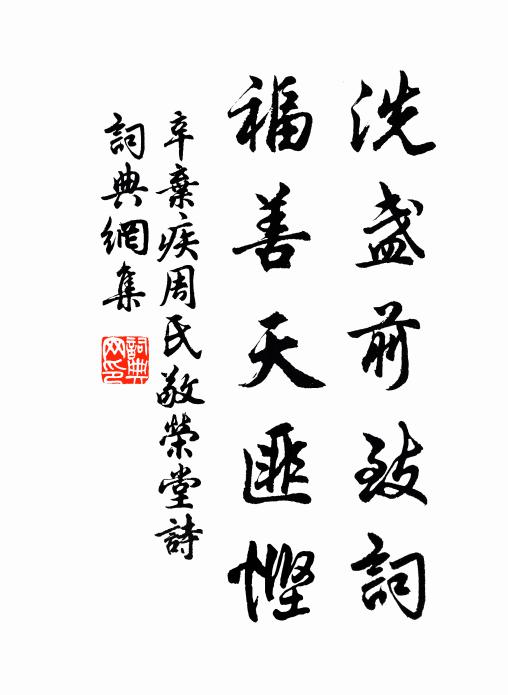 洗盞前致詞
福善天匪慳
辛棄疾周氏敬榮堂詩
詞典網集
詞典網印